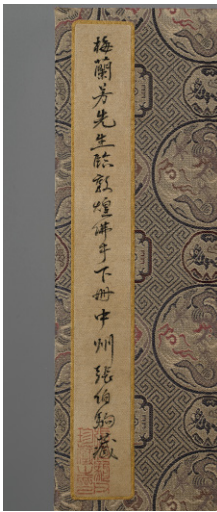 梅蘭芳先生臨敦煌佛手下冊中州張伯駒藏